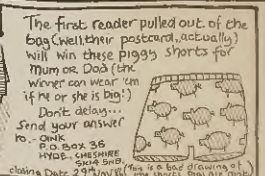 The first reader pulled out of the
bag (well, their postcard, actually)
will win these piggy shorts for
Mum or Dad (the
winner can wear 'em
if he or she is big!)
Don't delay...
Send your answer
to.. OINK
P.O. BOX 36
HYDE, CHESHIRE
SK14 5NB.
closing Date 29th
(This is a bad drawing of
the shorts